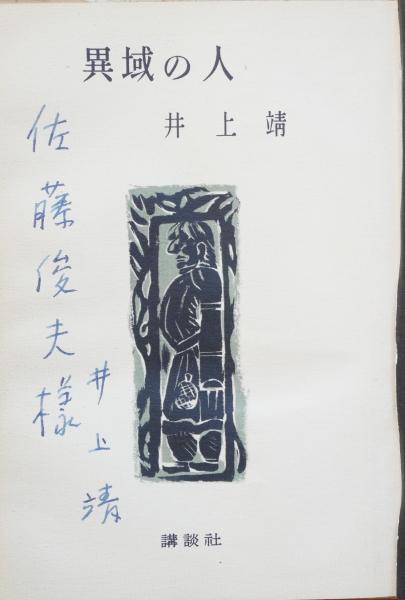 異域の人
井上靖
佐藤俊夫様
井上靖
講談社